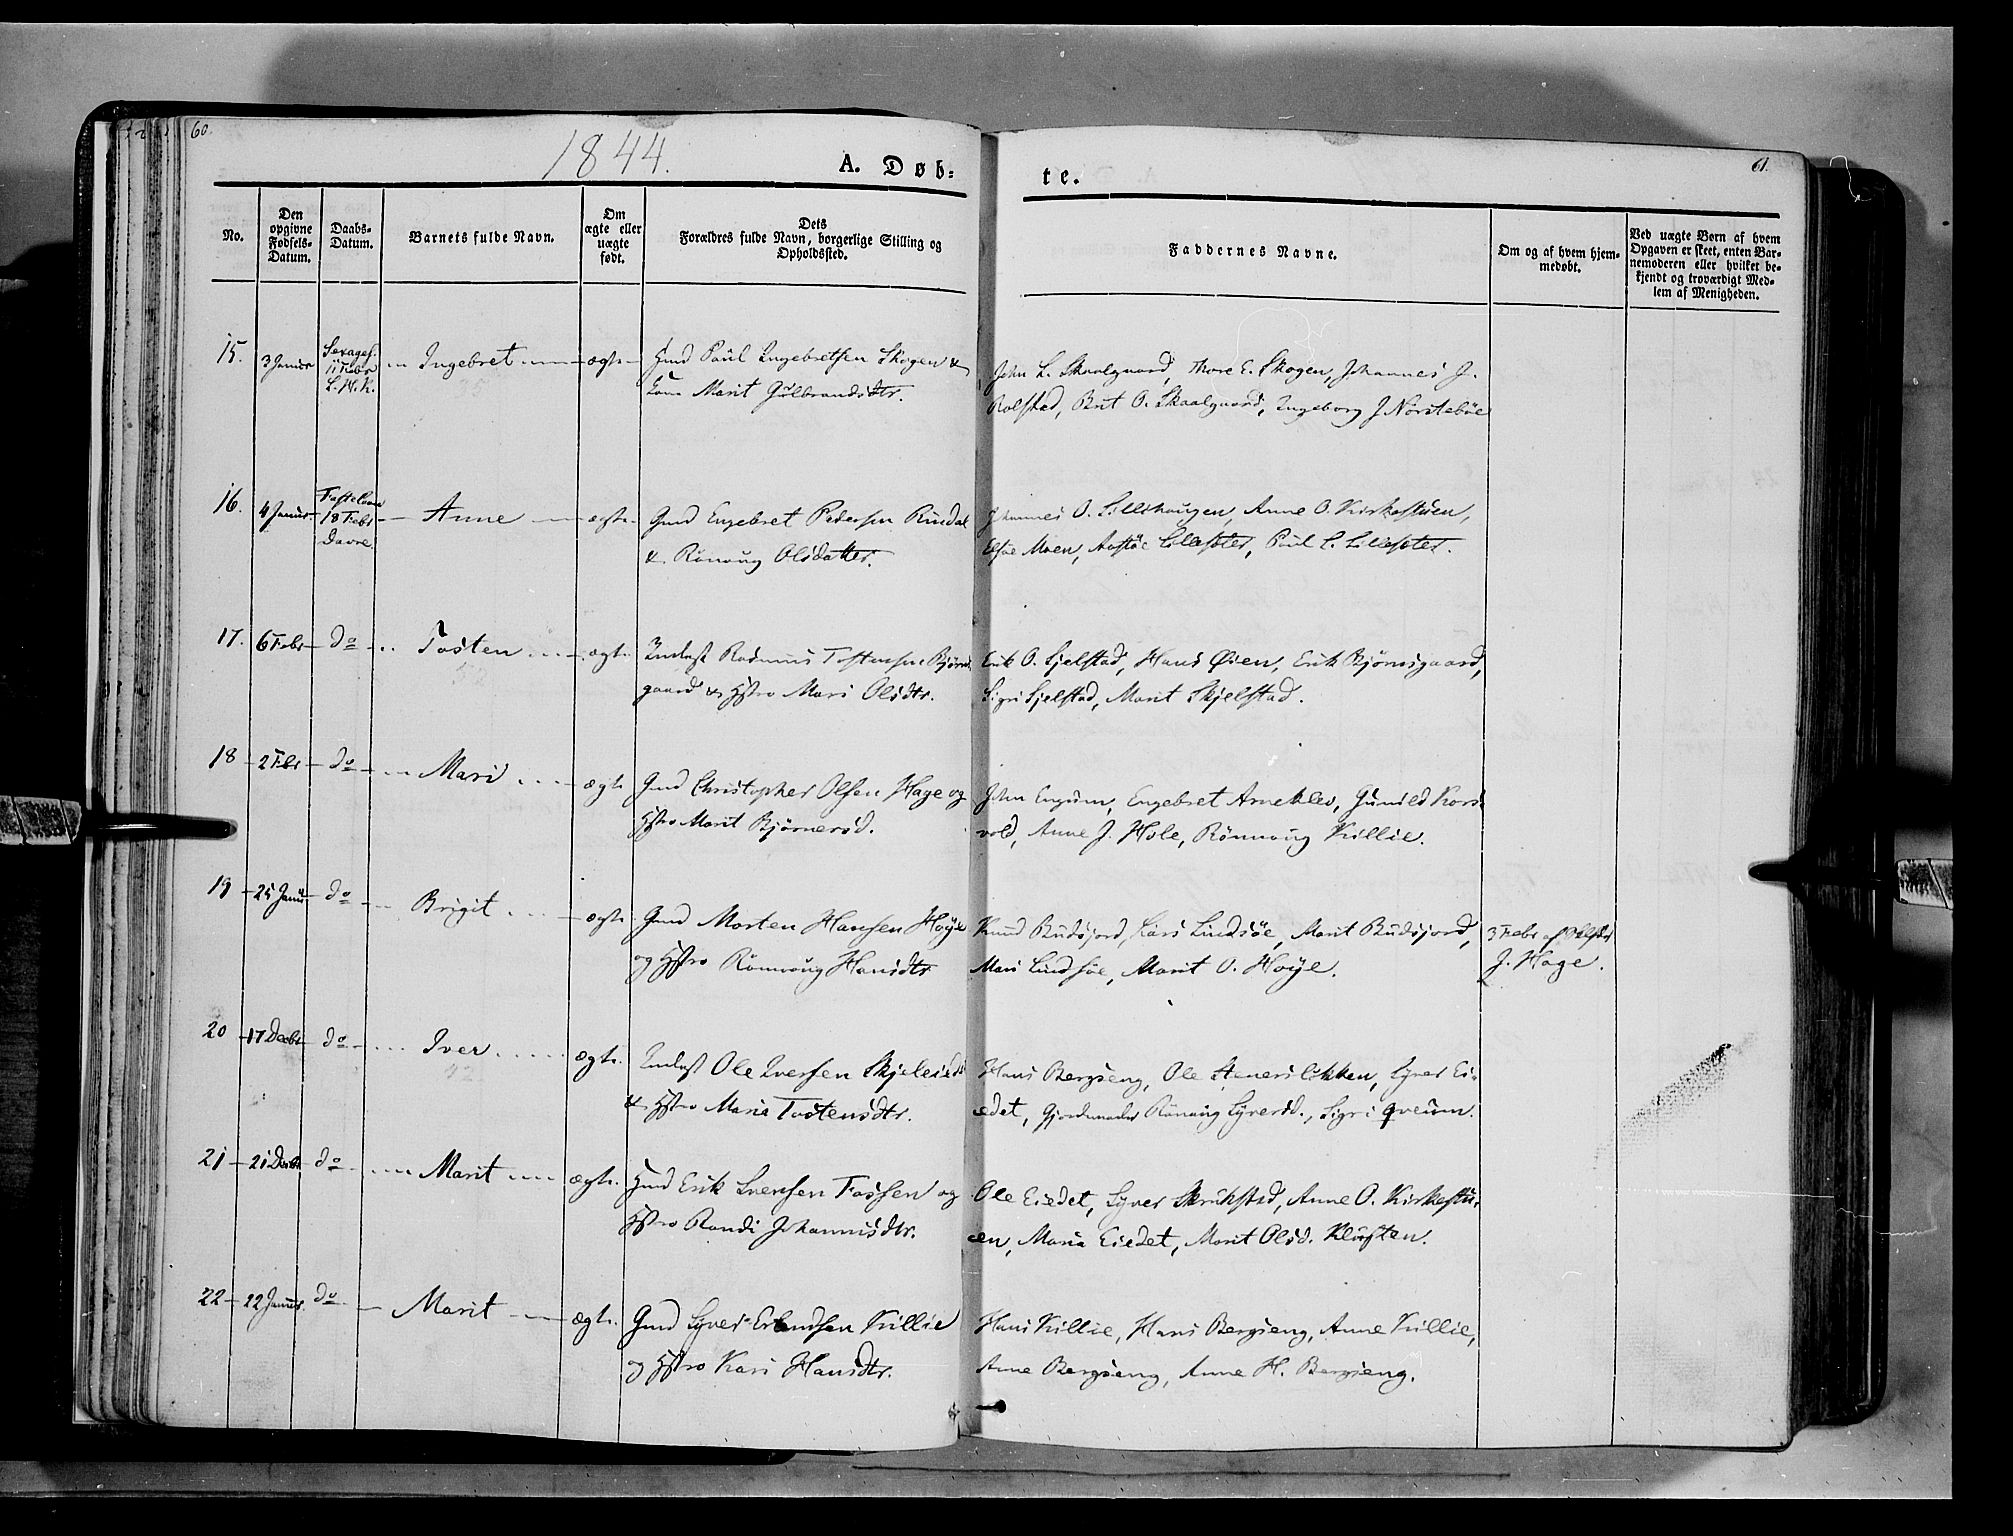 60.
1844.
A. Døb=
te.
61.
No.
Den opgivne Fødsels-Datum.
Daabs-Datum.
Barnets fulde Navn.
Om ægte eller uægte født.
Dets
Forældres fulde Navn, borgerlige Stilling og
Opholdssted.
Faddernes Navne.
Om og af hvem hjem-
medøbt.
Ved uægte Børn af hvem
Opgaven er skeet, enten Bar-
nemoderen eller hvilket be-
kjendt og troværdigt Med-
lem af Menigheden.
15. 3 Januar Sexages. 11 Febr L. H. K. Ingebret ægte Paul Ingebretsen Skogen &
Kone Marit Gulbrandsdtr.
John L. Skaalgaard, Thore E. Skogen, Johannes J.
Rolstad, Brit O. Skaalgaard, Ingeborg J. Nørstebøe
16. 4 Januar Fastelavn 18 Febr Dovre. Anne ægte Gmd Engebret Pedersen Rindal
& Rønnoug Olsdatter.
Johannes O. Lillehaugen, Anne O. Kirkestuen,
Moen, Paul L.
17. 6 Febr do Tosten ægte Indest Rasmus Tostensen Bjørns
gaard & Hstro Mari Olsdtr.
Erik O. Sjelstad, Hans Øien, Erik Bjørnsgaard,
Sigri Sjelstad, Marit Skjelstad.
18 2 Febr do Mari ægte Gmd Christopher Olsen Hage og
Hstro Marit Bjørnersd.
John Engum, Engebret Arneklev, Gunild Kors
vold, Anne J. Hole, Rønnoug Killie.
19 25 Januar do Brigit ægte Gmd Morten Hansen Høye
og Hstro Rønnoug Hansdtr
Knud Budsjord, Lars Lindsøe, Marit Budsjord,
Mari Lindsøe, Marit O. Høye.
3 Febr af
J. Hage.
20 17 Decbr do Iver ægte Indest Ole Iversen Skjeleied
& Hstro Maria Tostensdtr.
Hans Bergseng, Ole Løkken, Syver Ei-
edet, Gjordemoder Rønnoug Syversd., Sigri Qveum.
21 21 Decbr do Marit ægte Hmd Erik Iversen Fossen og
Hstro Randi Johannisdtr.
Ole Eiedet, Syver Skrikstad, Anne O. Kirkestu-
en, Maria Eiedet, Marit Olsd. Kluften.
22 22 Januar do Marit ægte Gmd Syver Erlandsen Killie
og Hstro Kari Hansdtr.
Hans Killie, Hans Bergseng, Anne Killie,
Anne Bergseng, Anne H. Bergseng.